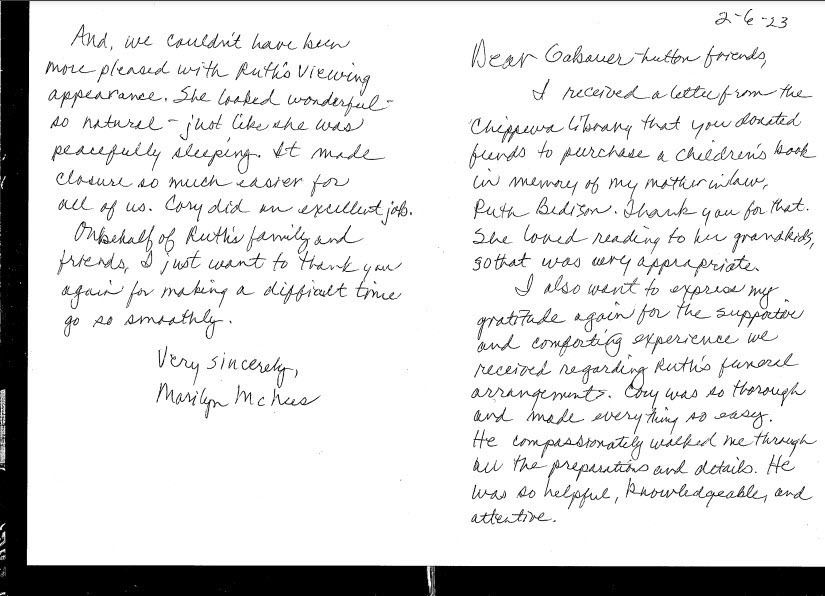 2-6-23
Dear Gabauer-Lutton friends,
I received a letter from the
Chippewa Library that you donated
funds to purchase a children's book
in memory of my mother in law,
Ruth Bedison. Thank you for that.
She loved reading to her grandkids,
so that was very appropriate.
I also want to express my
gratitude again for the supportive
and comforting experience we
received regarding Ruth's funeral
arrangements. Cory was so thorough
and made everything so easy.
He compassionately walked me through
all the preparations and details. He
was so helpful, knowledgeable, and
attentive.
And, we couldn't have been
more pleased with Ruth's viewing
appearance. She looked wonderful -
so natural - just like she was
peacefully sleeping. It made
closure so much easier for
all of us. Cory did an excellent job.
On behalf of Ruth's family and
friends, I just want to thank you
again for making a difficult time
go so smoothly.
Very sincerely,
Marilyn